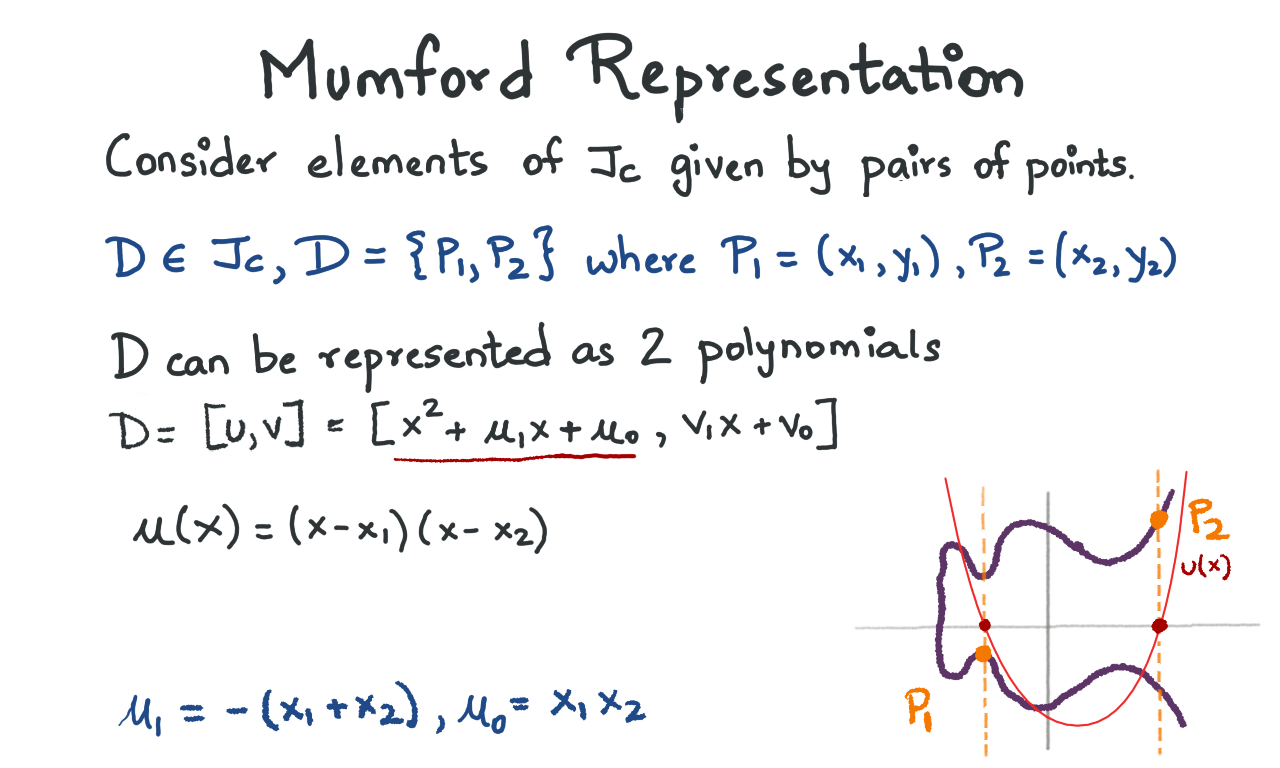 Mumford Representation
Consider elements of J_C given by pairs of points.
D ∈ J_C, D = {P₁, P₂} where P₁ = (x₁, y₁), P₂ = (x₂, y₂)
D can be represented as 2 polynomials
D = [u, v] = [x² + u₁x + u₀, v₁x + v₀]
u(x) = (x - x₁)(x - x₂)
P₂
u(x)
P₁
u₁ = -(x₁ + x₂), u₀ = x₁ x₂